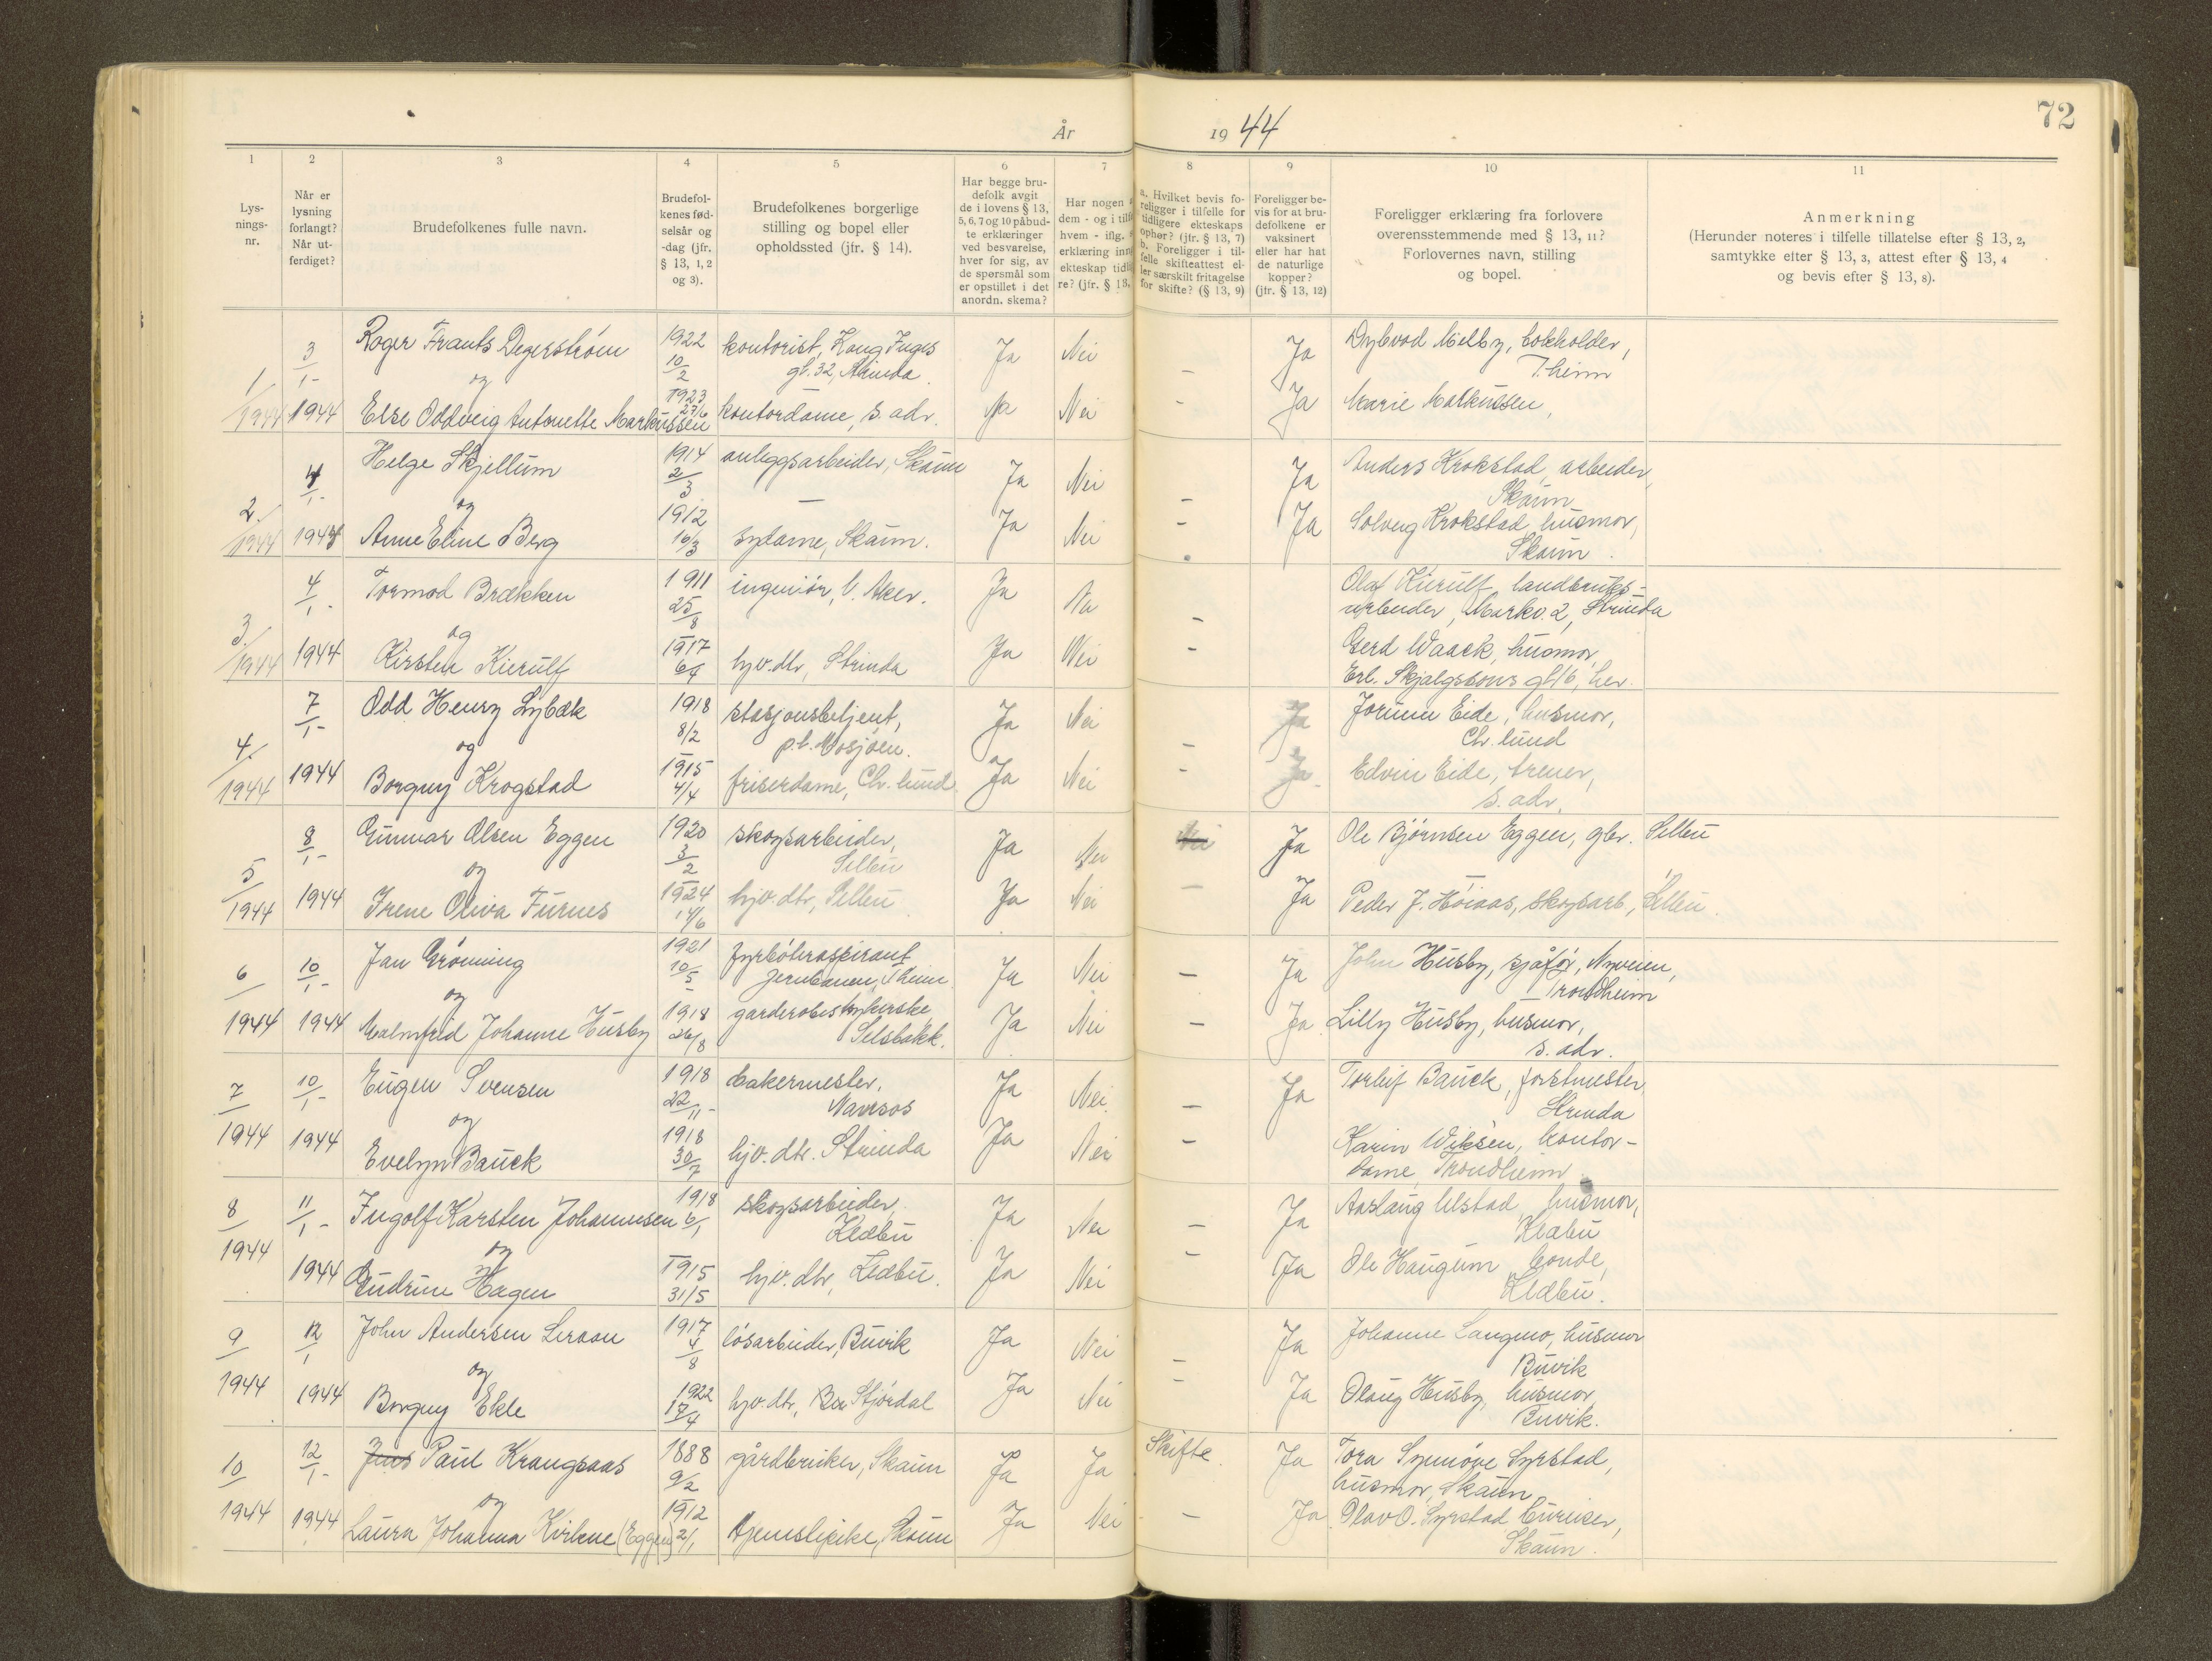 72
År 1944
1
2
3
4
5
6
7
8
9
10
11
Lys-
nings-
nr.
Når er
lysning
forlangt?
Når ut-
ferdiget?
Brudefolkenes fulle navn.
Brudefol-
kenes fød-
selsår og
-dag (jfr.
§ 13, 1, 2
og 3).
Brudefolkenes borgerlige
stilling og bopel eller
opholdssted (jfr. § 14).
Har begge bru-
defolk avgit
de i lovens § 13,
5, 6, 7 og 10 påbud-
te erklæringer
ved besvarelse,
hver for sig, av
de spørsmål som
er opstillet i det
anordn. skema?
Har nogen
dem - og i tilf
hvem - iflg.
erklæring inn
ekteskap tidl
re? (jfr. § 13,
a. Hvilket bevis fo-
religger i tilfelle for
tidligere ekteskaps
ophør? (jfr. § 13, 7)
b. Foreligger i til-
felle skifteattest el-
ler særskilt fritagelse
for skifte? (§ 13, 9)
Foreligger be-
vis for at bru-
defolkene er
vaksinert
eller har hat
de naturlige
kopper?
(jfr. § 13, 12)
Foreligger erklæring fra forlovere
overensstemmende med § 13, 11?
Forlovernes navn, stilling
og bopel.
Anmerkning
(Herunder noteres i tilfelle tillatelse efter § 13, 2,
samtykke efter § 13, 3, attest efter § 13, 4
og bevis efter § 13, 8).
1/1944 3/1- 1944
Roger Frants Degerstrøm 1922 10/2 kontorist, Kong Inges
gt. 32, Strinda. Ja Nei - Ja Dybvad Melby, bokholder,
T.heim
og
Else Oddveig Antonette Markussen 1923 27/6 kontordame, s. adr. Ja Nei - Ja Marie Markussen,
2/1944 4/1- 1944
Helge Skjellum 1914 2/3 anleggsarbeider, Skaun Ja Nei - Ja Anders Krokstad, arbeider,
Skaun
og
Anne Eline Berg 1912 16/3 sydame, Skaun. Ja Nei - Ja Solveig Krokstad, husmor,
Skaun.
3/1944 4/1- 1944
Tormod Brækken 1911 25/8 ingeniør, V. Aker. Ja Nei - Olaf Kierulf, landbruks-
arbeider, Markv. 2, Strinda
og
Kirsten Kierulf 1917 6/4 hjv. dtr, Strinda Ja Nei - Gerd Waack, husmor,
Erl. Skjalgssons gt 16, her.
4/1944 7/1- 1944
Odd Henry Lybæk 1918 8/2 stasjonsbetjent,
p.t. Mosjøen. Ja Nei - Ja Jorunn Eide, husmor,
Chr. sund
og
Borguy Krogstad 1915 4/4 friserdame, Chr. sund. Ja Nei - Ja Edvin Eide, trener,
s. adr.
5/1944 8/1- 1944
Gunnar Olsen Eggen 1920 3/2 skogsarbeider,
Selbu Ja Nei Nei Ja Ole Bjørnsen Eggen, gbr. Selbu
og
Irene Oliva Furnes 1924 14/6 hjv. dtr, Selbu Ja Nei - Ja Peder J. Høiaas, skogsarb., Selbu.
6/1944 10/1- 1944
Jan Grønning 1921 10/5 fyrbøteraspirant
Jernbanen, T.heim Ja Nei - Ja John Husby, sjåfør, Nyveien,
Trondheim
og
Malmfrid Johanne Husby 1918 26/8 garderobestrykerske,
Selsbakk. Ja Nei - Ja Lilly Husby, husmor,
s. adr.
7/1944 10/1- 1944
Eugen Svensen 1918 22/11- bakermester,
Namsos Ja Nei - Ja Torleif Bauck, forstmester,
Strinda
og
Evelyn Bauck 1918 30/7 hjv. dtr. Strinda Ja Nei - Karin Wiksén, kontor-
dame, Trondheim.
8/1944 11/1- 1944
Ingolf Karsten Johannsen 1918 6/1 skogsarbeider,
Klæbu Ja Nei - Ja Aaslaug Ulstad, husmor,
Klæbu
og
Gudrun Hagen 1915 31/5 hjv. dtr, Klæbu. Ja Nei - Ja Ole Haugum, bonde,
Klæbu.
9/1944 12/1 1944
John Andersen Leraan 1917 4/8 løsarbeider, Buvik Ja Nei - Ja Johanne Langmo, husmor
Buvik
og
Borguy Ekle 1922 17/4 hjv. dtr, Stjørdal Ja Nei - Ja Olaug Husby, husmor,
Buvik.
10/1944 12/1- 1944
Jens Paul Krangsaas 1888 9/2 gårdbruker, Skaun Ja Ja Skifte. Ja Tora Synnøve Syrstad,
husmor, Skaun
og
Laura Johanna Kvilene (Eggen) 1912 2/1 tjenestepike, Skaun Ja Nei - Ja Olav O. Syrstad, bureiser,
Skaun.